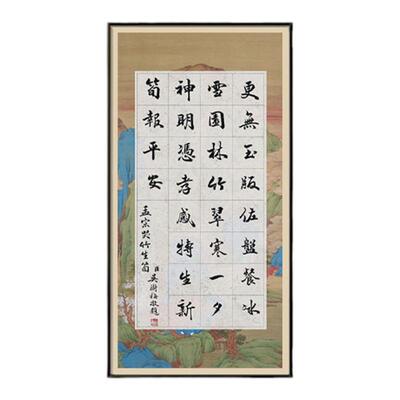 更無玉版佐盤餐冰
雪園林竹翠寒一夕
神明憑孝感特生新
筍報平安
孟宗哭竹生筍
吳樹梅敬題